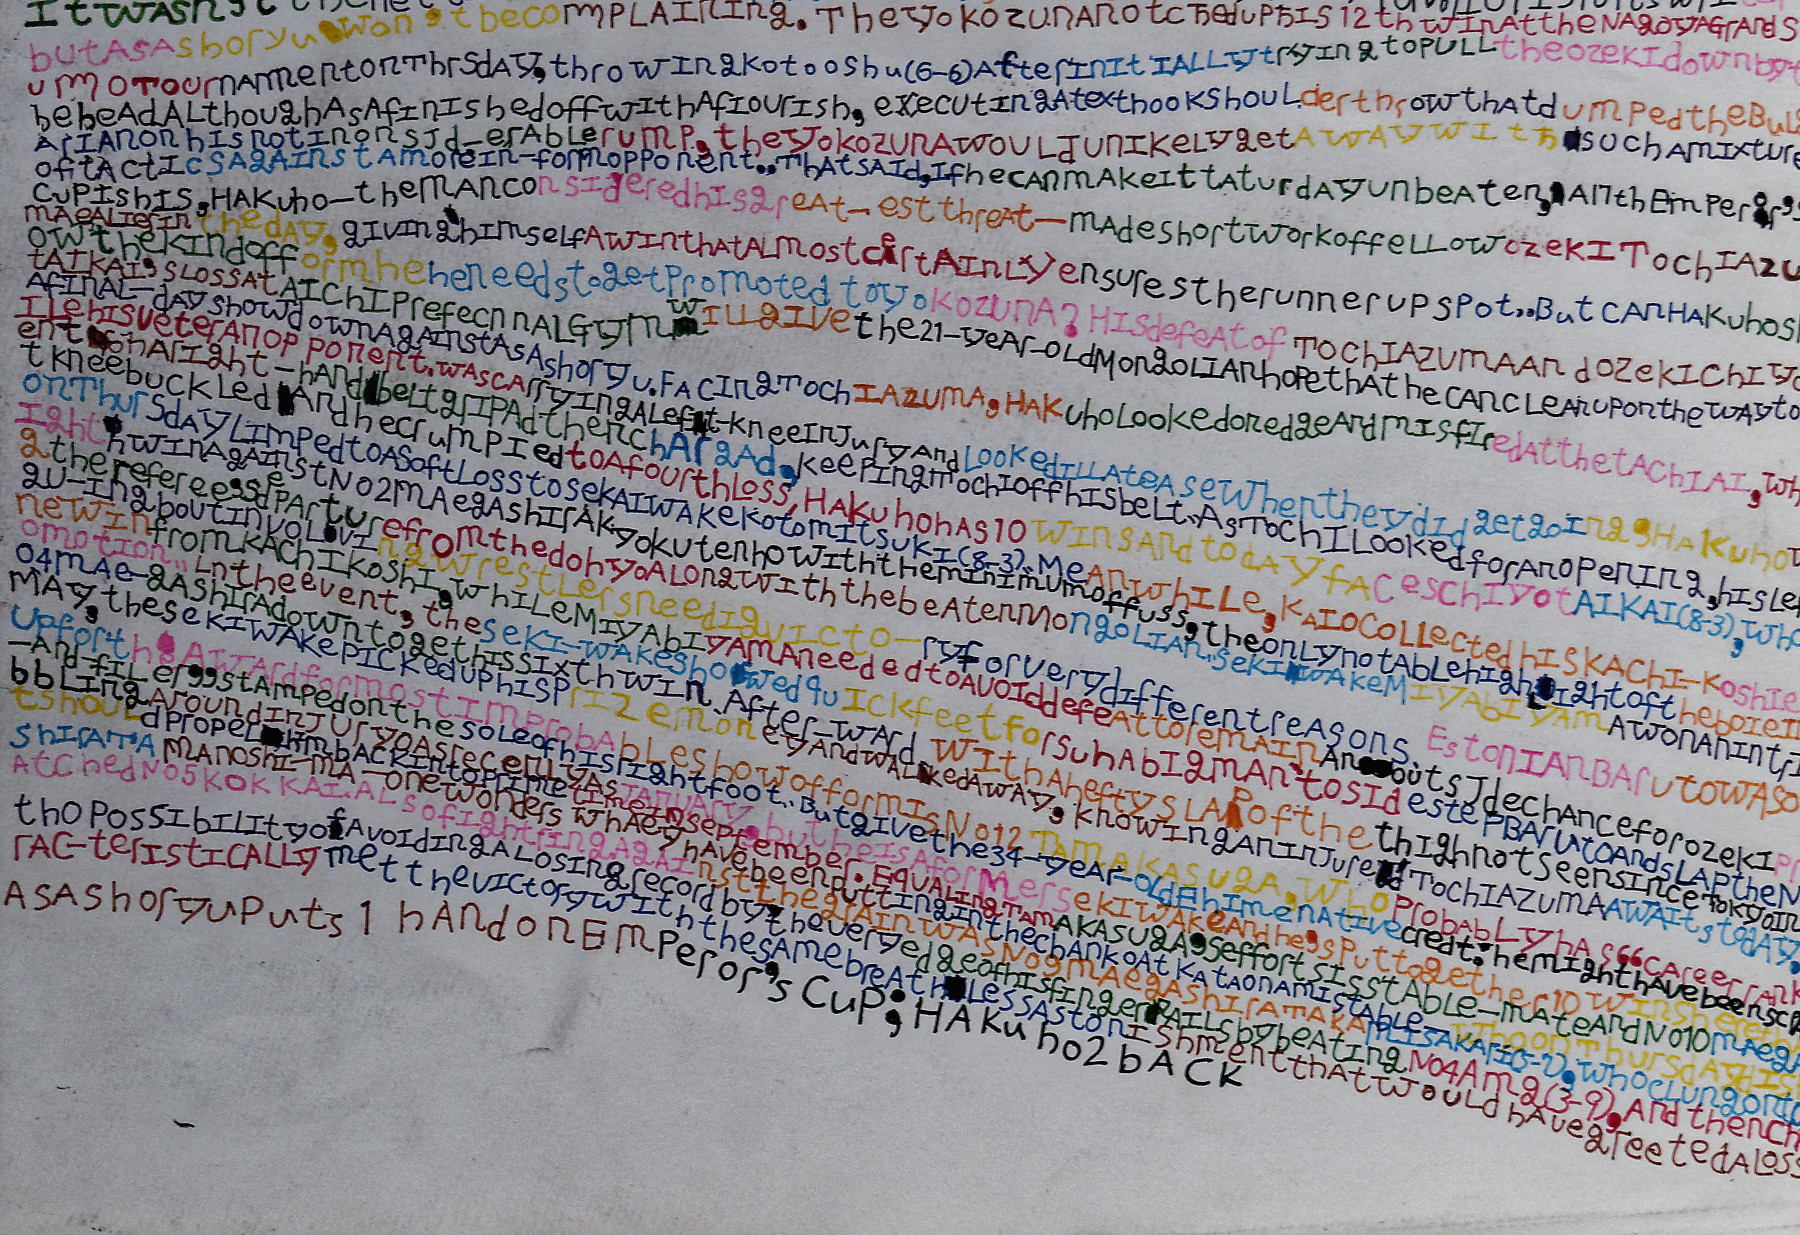 butAsAshoryuwon,tbecomPLAIning.TheyokozunAnotchedupHis12thwinAttheNAgoyAgrAndS
umoTournAmentonThrsdAy,throwIngkotooshu(6-6)AfterInItIALLytryingtoPULLtheozekIdownby
heheAdALthoughAsAfInIshedoffwithAfIourIsh,executIngAtexthookshouLderthrowthAtdumpedtheBuL
ArIAnonhIsnotInonsJd-erAbLerump.theyokozunAwouLdunIkeLygetAwAywIthsuchAmIxture
oftActIcsAgAInstAmoreIn-formopponent..ThAtsAId,IfhecAnmAkeIttAturdAyunbeAten,AnthEmPeror,s
CuPIshIs.HAKuho-themAnconsIderedhIsgreAt-estthreAt-mAdeshortworkoffeLLowozekITochIAzu
mAeALIerInthedAy,gIvInghImseLfAwInthAtALmostcertAInLyensurestherunnerupsPot..ButCAnHAKuhosh
owthekIndofformheheneedstogetPromotedtoyokozunA?HIsdefeAtofTochIAzumAAndozekIChIyo
tAIKAI,sLossAtAIchIPrefecnnALGymwILLgIvethe21-yeAr-oLdMongoLIAnhoPethAthecAncLeAruPonthewAyto
AfInAL-dAyshowdownAgAInstAsAshoryu.FAcIngTochIAzumA,HAKuhoLookedonedgeAndmIsfIredAtthetAchIAI,wh
ILehIsveterAnopponent.wAscArryIngALeft-kneeInJuryAndLookedILLAteAsewhentheydIdgetgoIng,HAKuho
entonArIght-hAndbeLtgrIPAdthenchArgAd,keePIngTochIoffhIsbeLt.AsTochILookedforAnoPenIng,hIsLef
tkneebuckLedAndhecrumPIedtoAfourthLoss,HAKuhohAs10wInsAndtodAyfAcesChIyotAIKAI(8-3),who
onThursdAyLImPedtoAsoftLosstosekAIwAkeKotomItsukI(8-3).MeAnwhILe,KAIocoLLectedhIsKAChI-Koshie
IghthwInAgAInstNo2mAegAshIrAKyokutenhowIththemInImumoffuss,theonLynotAbLehIghLIghtofthe
gthereferee,sdPArturefromthedohyoALongwIththebeAtenMongoLIAn.SekIwAkeMIyAbIyAmAwonAnIntrI
gu-IngboutInvoLvIngwrestLersneedIgvIcto-ryforverydIfferentreAsons.EstonIANBArutowAso
newInfromKAchIKoshI,whILeMIyAbIyAmAneededtoAvoIddefeAttoremAInAnoutsJdechAnceforozekIPr
omotIon..Intheevent,thesekI-wAkeshowedquIckfeetforsuhAbIgmAn'tosIdestePBArutoAndsLAPtheN
o4mAe-gAshIrAdowntogethIssIxthwIn.After-wArdwIthAheftysLAPofthethIghnotseensInceTokyoIn
MAy,thesekIwAkePIckeduPhIsPrIzemoneyAndwALkedAwAy,knowIngAnInJuredTochIAzumAAwAItstodAy.
UpfortheAwArdformostImProbAbLeshowofformIsNo12TAmAKAsugA,whoProbAbLyhAs66cAreerrAnk
-And-fILer,,stAmPedonthesoLeofhIsrIghtfoot..ButgIvethe34-yeAr-oLdEhImenAtIvecredt:hemIghthAvebeensc
bbLIngAroundInJuryoAsrecentLyAsJAnuAry,butheIsAformersekIwAkeAndhe,sPuttogether10wInshere
tshouLdProPeLhImbAckIntoPrImetImeInSePtember.EquALIngTAmAKAsugA,seffortsIsstAbLe-mAteAndNo10mAegA
shIrATAmAnoshI-mA-onewonderswhAeyhAvebeenPuttIngInthechAnkoAtKAtAonAmIstAbLe-whoonThursdAydIs
AtchedNo5KoKKAI.ALsofIghtIngAgAInstthegrAInwAsNo9mAegAshIrATAKAmIsAKArI(5-7),whocLungonto
thoPossIbILItyofAvoIdIngALosIngrecordbytheveryedgeofhIsfIngernAILsbybeAtIngNo4Amg(3-9),AndthenCh
rAC-terIstICALLymettthevIctorywIththesAmebreAthLessAstonIshmentthAtwouLdhAvegreetedALoss
AsAshoryuPuts1hAndonEmPeror,sCuP;HAKuho2bACK